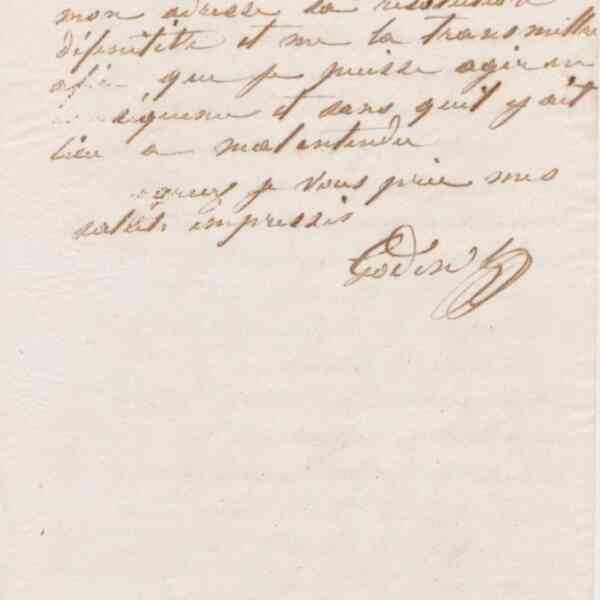 mon adresse sa résolution
définitive et me la transmettre
afin que je puisse agir en
séquence et sans qu'il y ait
lieu a malentendu
agréez je vous prie mes
saluts empressés
Godin